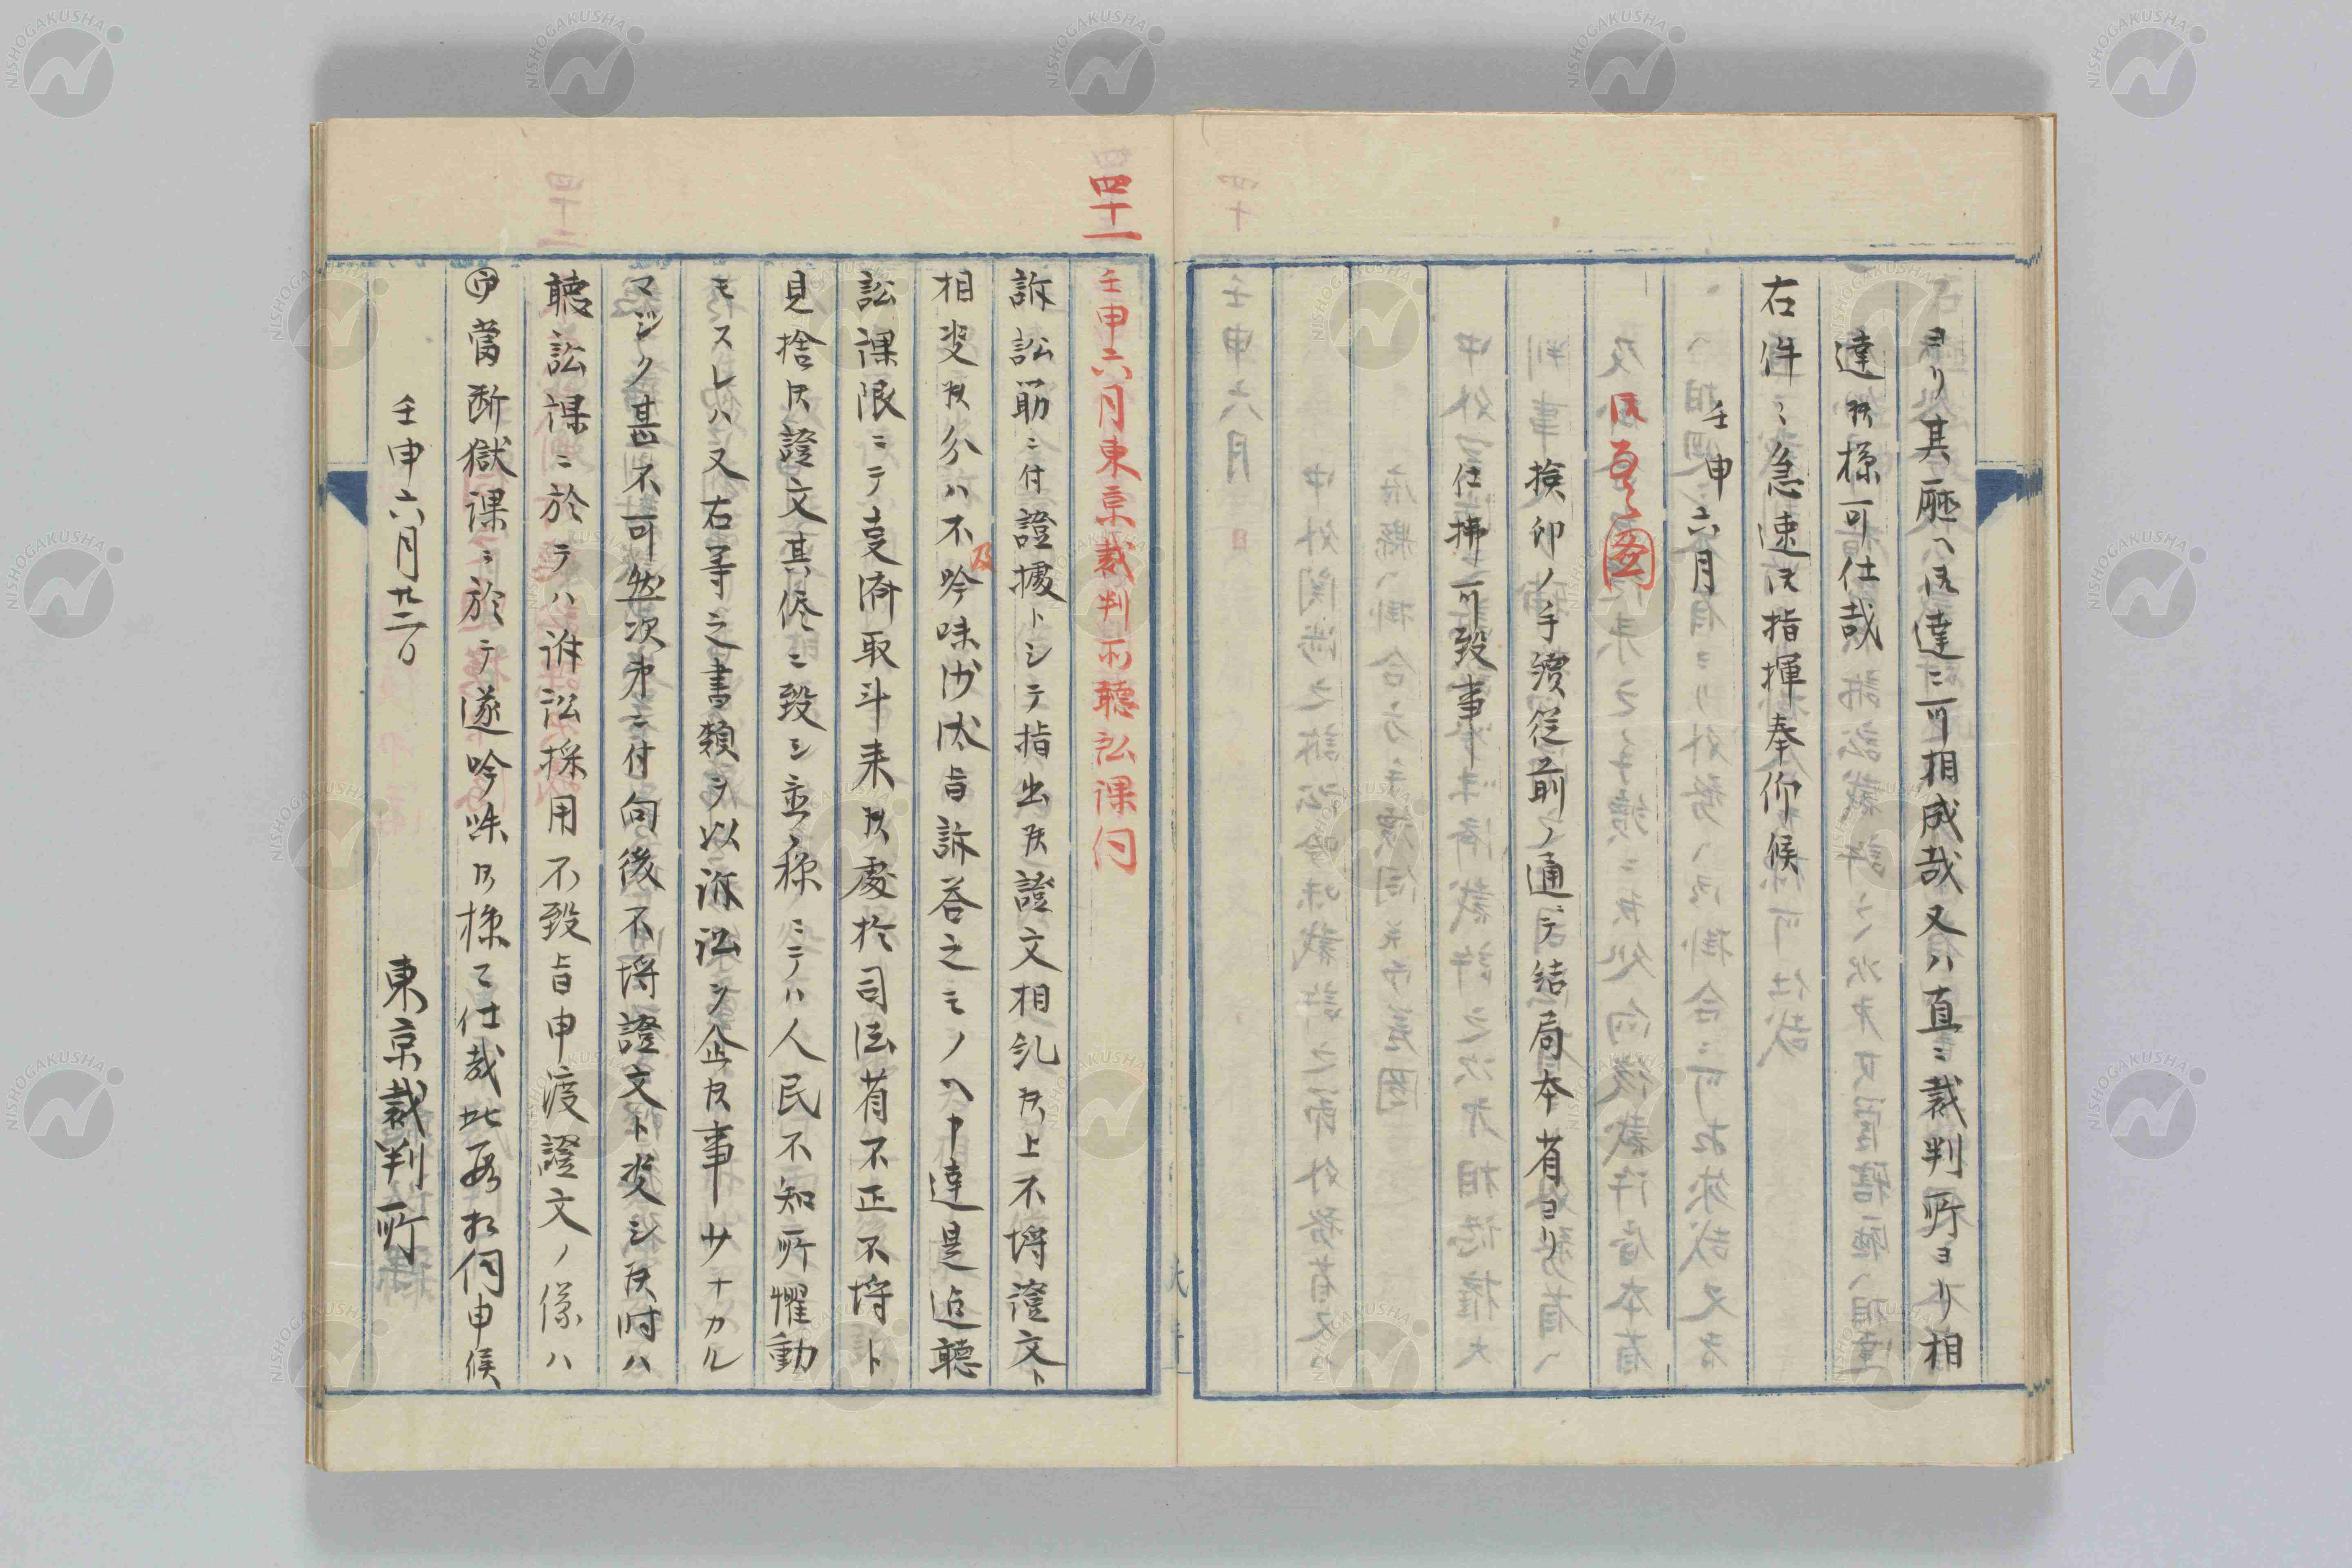 ヨリ其廰ヘ御達ニ可相成哉又ハ直ニ裁判所ヨリ相
達候様可仕哉
右件々急速御指揮奉仰候
壬申六月
検印ノ手續従前ノ通ヂ結局本省ヨリ
仕拂可致事
四十一
壬申六月東京裁判所聽訟課伺
訴訟筋ニ付證據トシテ指出候證文相糺候上不埒證文ト
相決候分ハ不及吟味沙汰旨訴答之モノヘ申達是迄聽
訟課限ニテ支済取斗来候處於司法省不正不埒ト
見捨候證文其侭ニ致シ並ヘ稼ニテハ人民不知所懼動
モスレハ又右等之書類ヲ以訴訟ヲ企候事少ナカル
マジク甚不可然次第ニ付向後不埒證文ト決シ候時ハ
聽訟課ニ於テハ訴訟採用不致旨申渡證文ノ係ハ
當断獄課ニ於テ遂吟味候様可仕哉此段相伺申候
壬申六月廿二日
東京裁判所
NISHOGAKUSHA